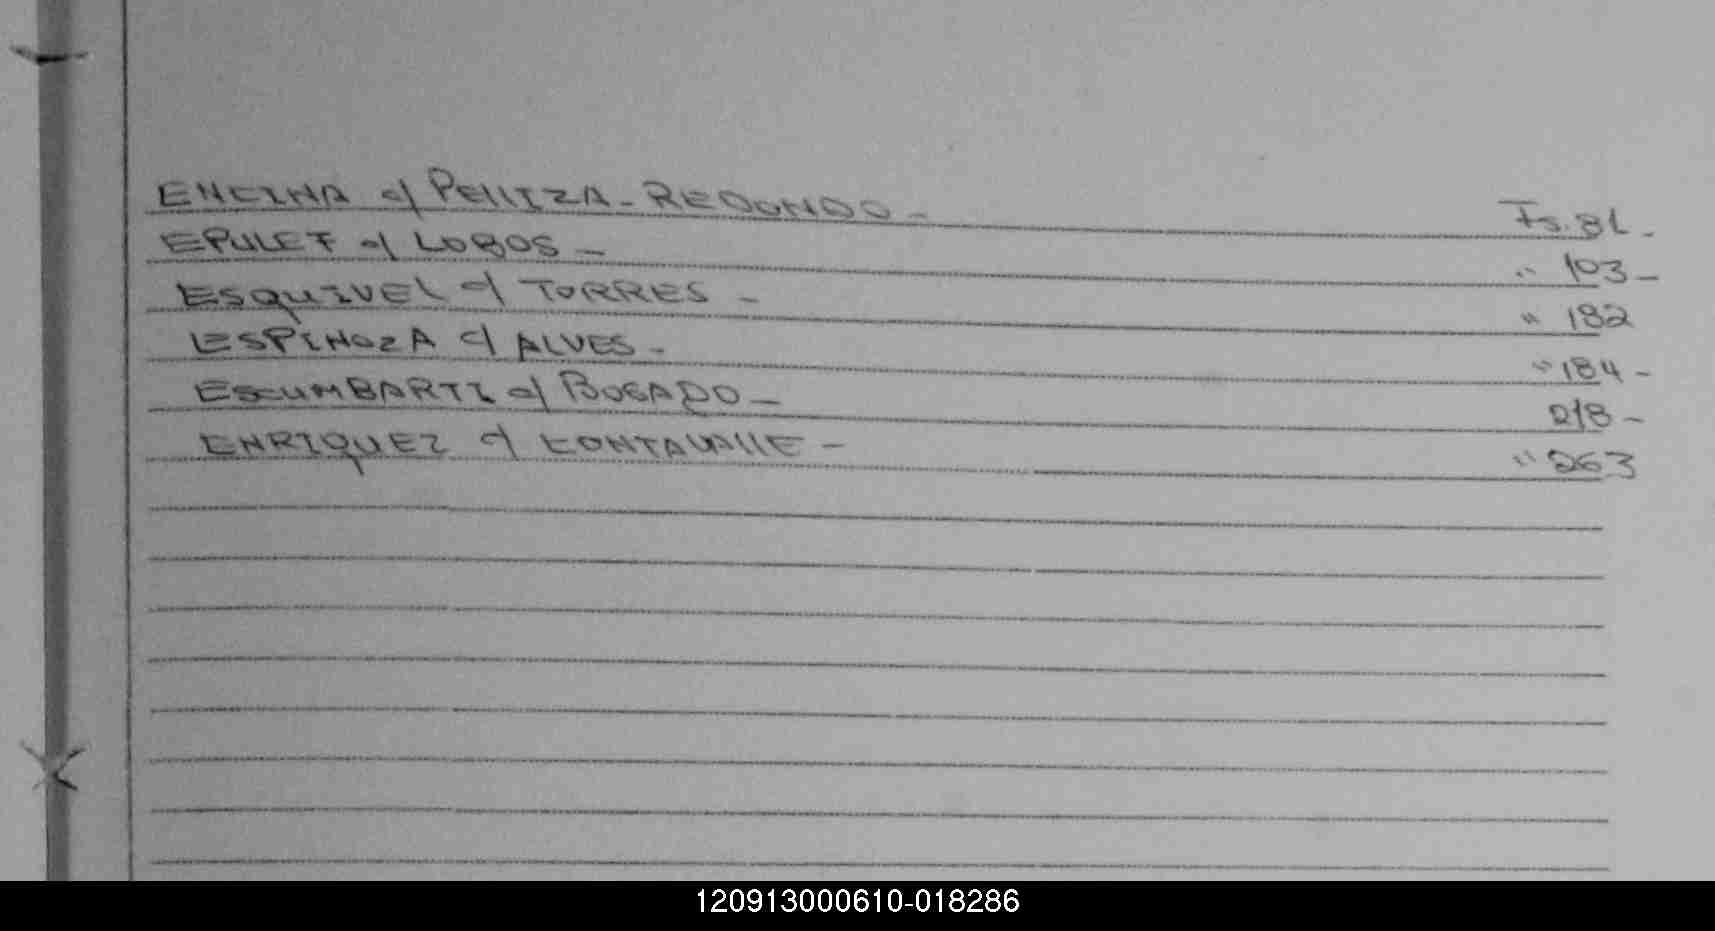 ENCINA c/ PELLIZA - REDONDO - Fs. 81 -
EPULEF c/ LOBOS - " 103 -
ESQUIVEL c/ TORRES - " 182
ESPINOZA c/ ALVES - " 184 -
ESCUMBARTI c/ BOGADO - 218 -
ENRIQUEZ c/ CONTAVALLE - " 263
120913000610-018286